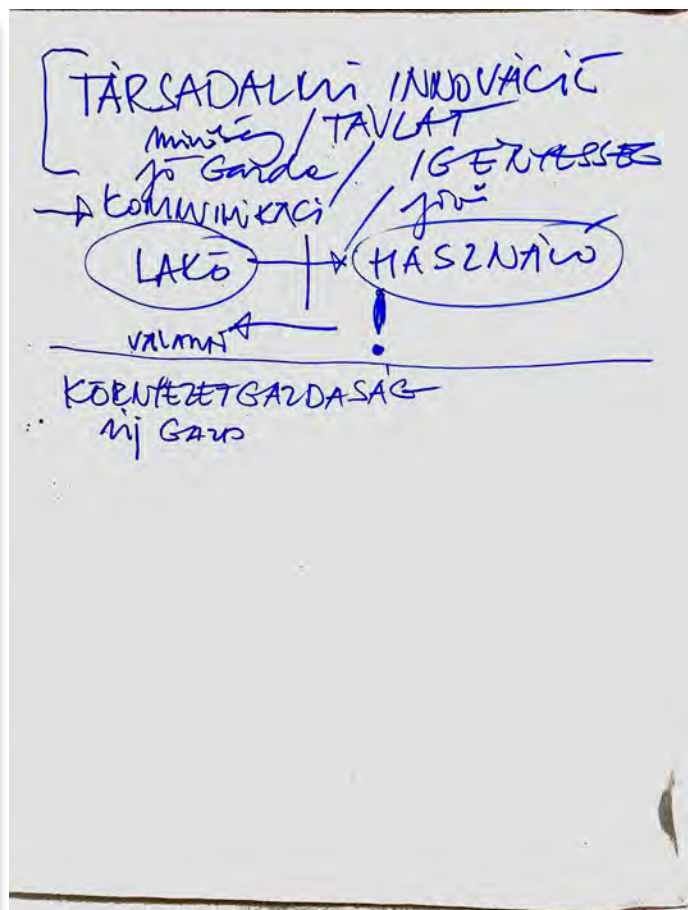 TÁRSADALMI INNOVÁCIÓ
minőség / TÁVLAT
jó Gazda / IGÉNYESSÉG
→ KOMMUNIKÁCI / jövő
LAKÓ → HASZNÁLÓ
!
KÖRNYEZETGAZDASÁG
új GAZD